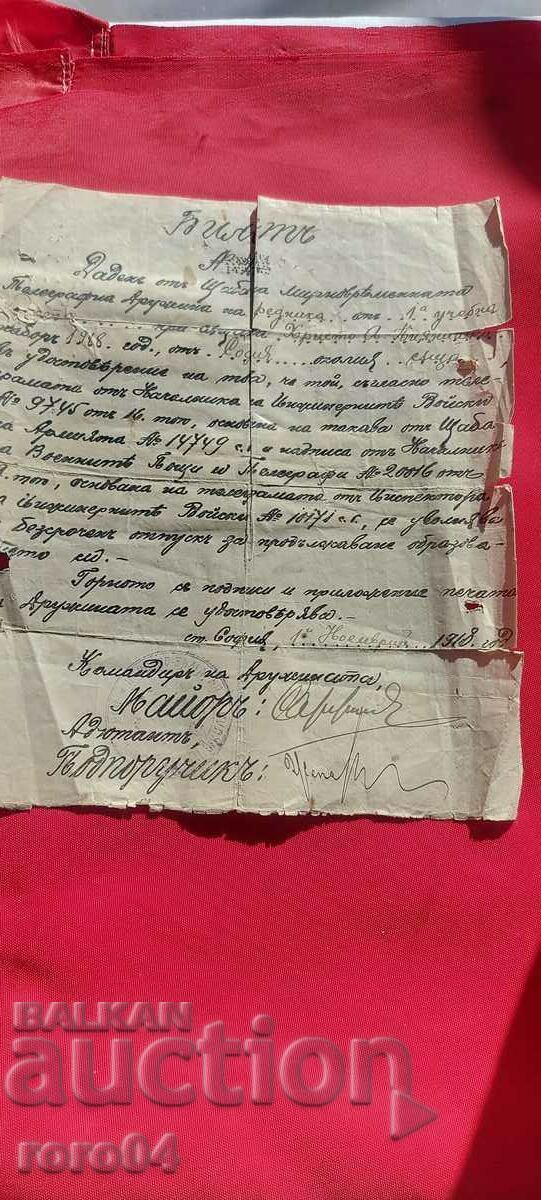 Билетъ
№
Даденъ отъ Щаба на мирновременната
Телеграфна Дружина на редника отъ 1а учебна
при същата Христо
наборъ 1918 год., отъ София околия съща
въ удостоверение на това, че той, съгласно теле-
грамата отъ Началника на Инжинернитѣ Войски
№ 9745 отъ 16. топ, основана на такава отъ Щаба
на Армията № 14749 с.г. и надписа отъ Началник
на Военнитѣ Пощи и Телеграфи № 20016 отъ
топ, основана на телеграмата отъ Инспектора
на Инжинернитѣ Войски № 10171 с.г., се уволнява
безсроченъ отпускъ за продължаване образова-
нието си.-
Горното съ подписи и приложение печата
на Дружината се удостовѣрява.-
ст. София, 1й Ноемврий 1918 год
Командиръ на Дружината,
Майоръ:
Адютантъ,
Подпоручикъ:
BALKAN
auction
roro04